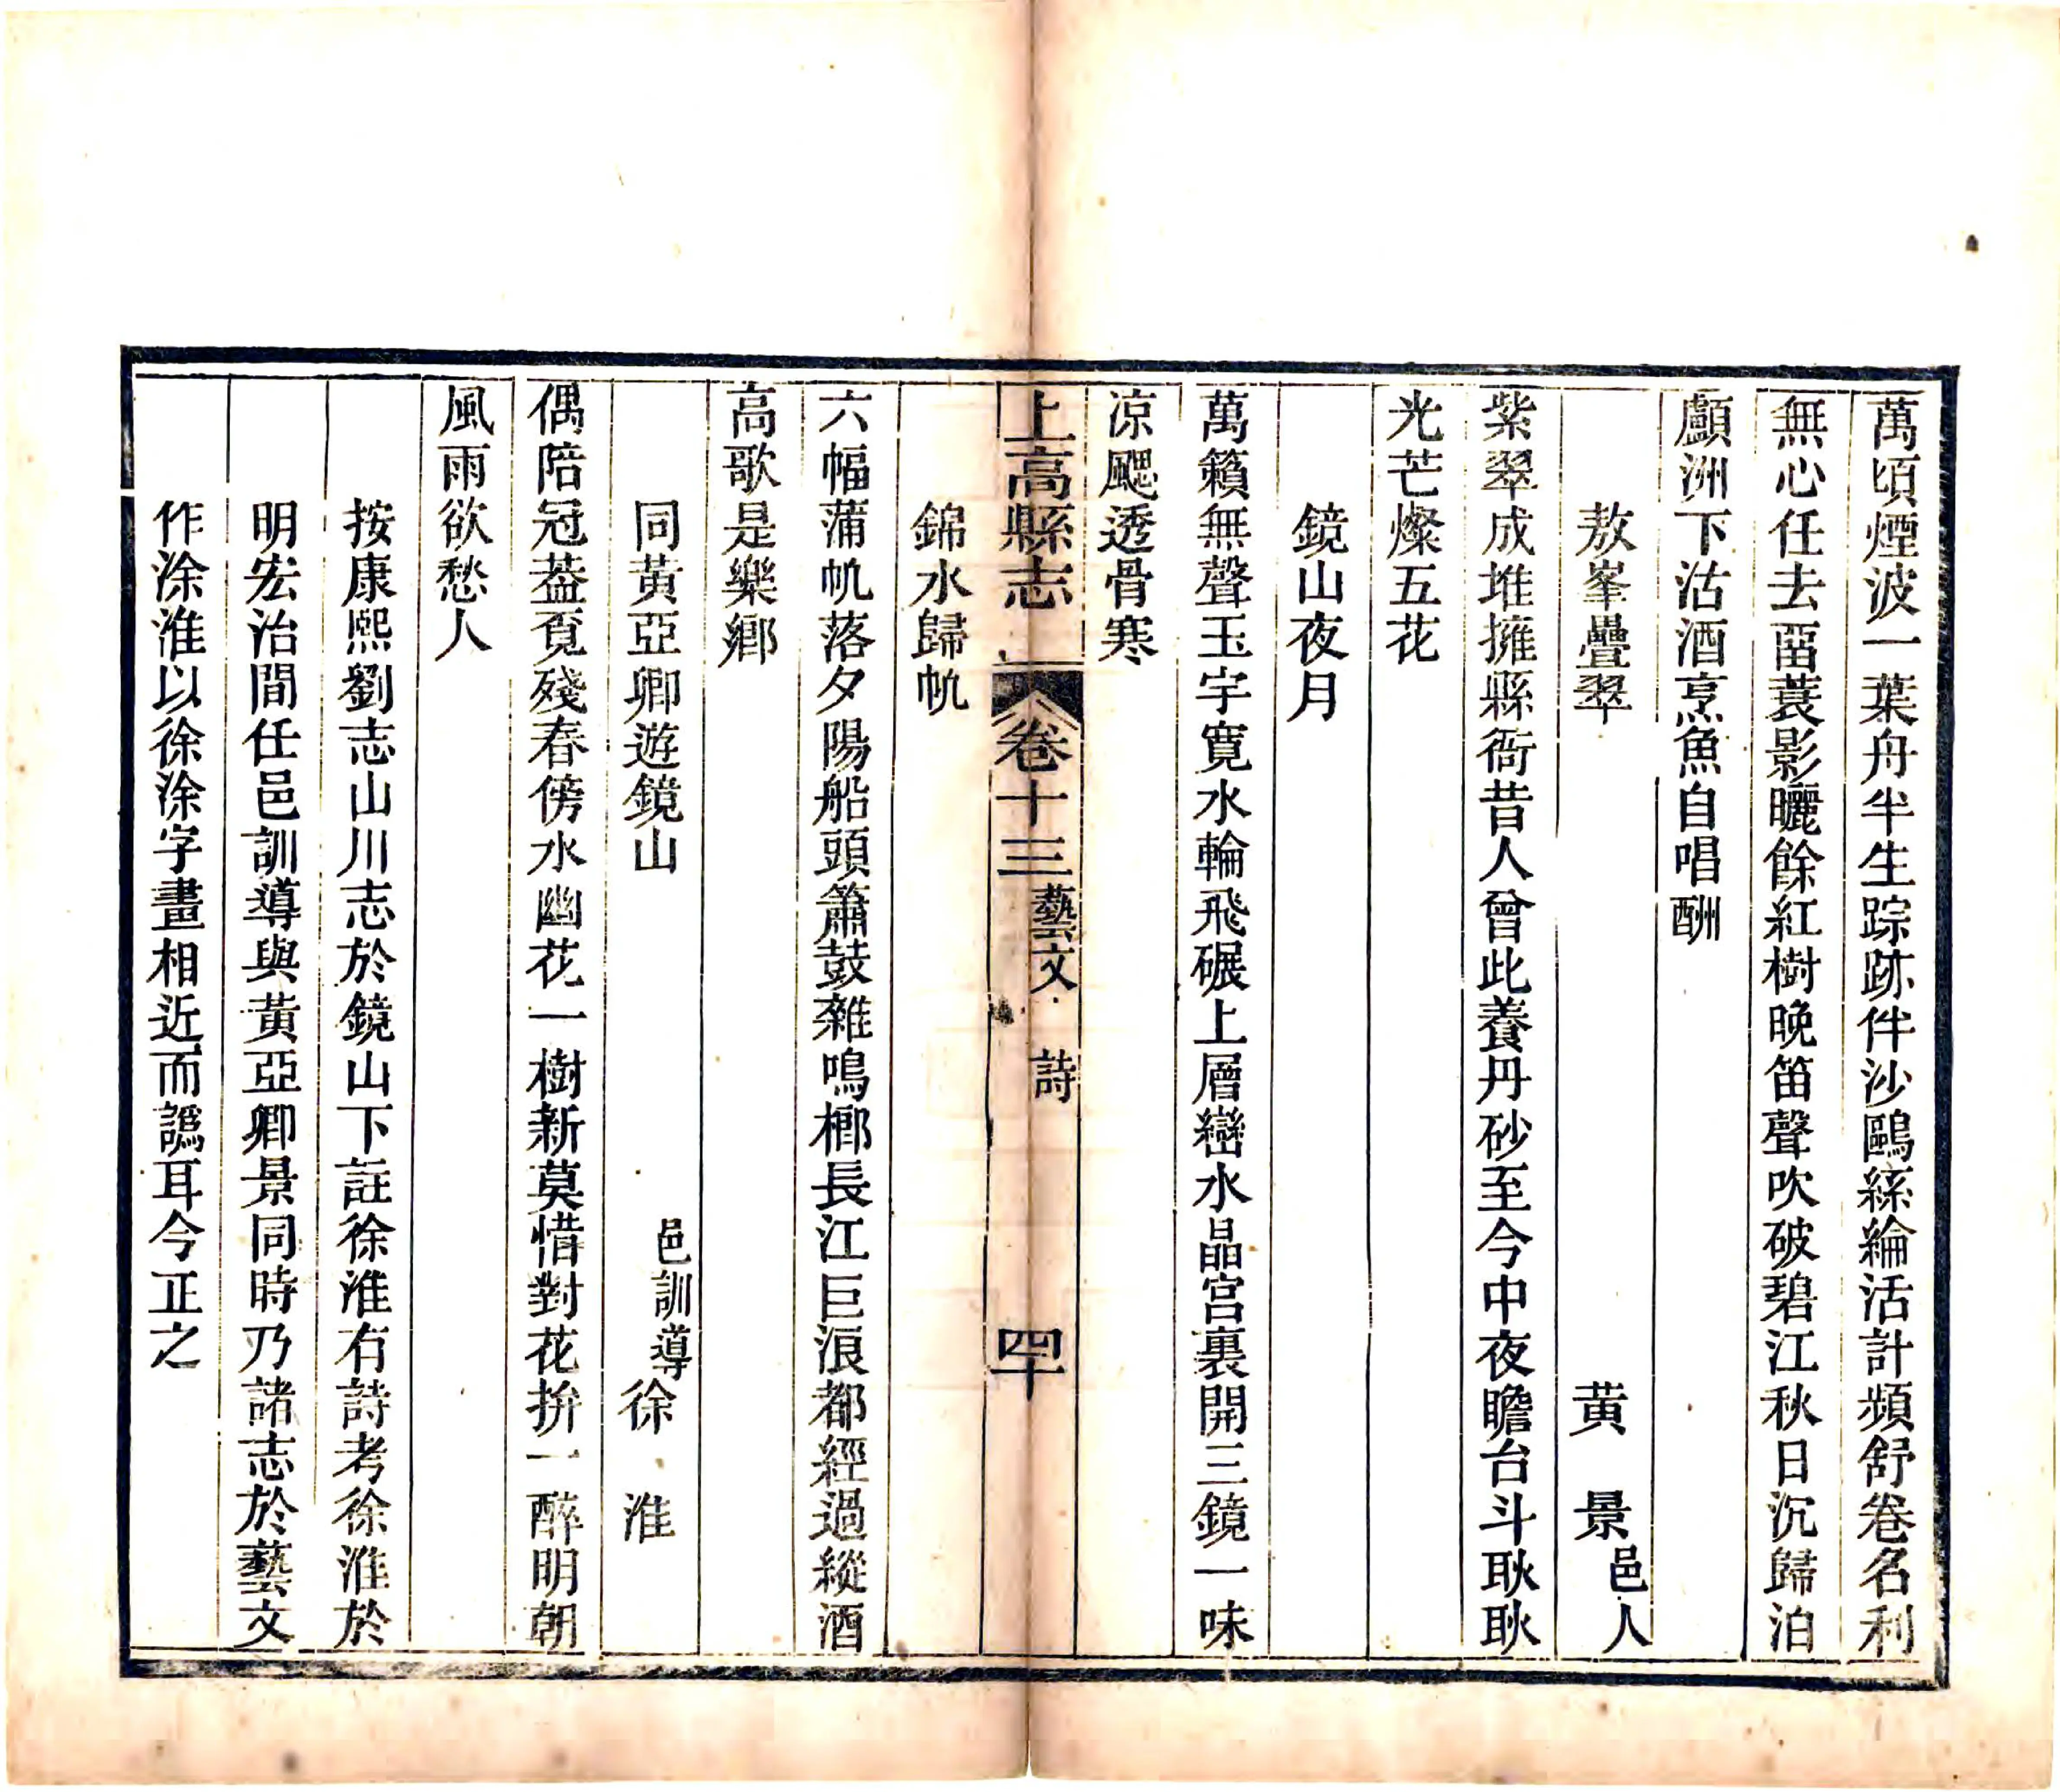 萬頃煙波一葉舟半生踪跡伴沙鷗絲綸活計頻舒卷名利
無心任去畱蓑影曬餘紅樹晚笛聲吹破碧江秋日沉歸泊
顱洲下沽酒烹魚自唱酬
敖峯疊翠 黄景邑人
紫翠成堆擁縣衙昔人曾此養丹砂至今中夜瞻台斗耿耿
光芒燦五花
鏡山夜月
萬籟無聲玉宇寛水輪飛碾上層巒水晶宫裏開三鏡一味
凉颸透骨寒
上高縣志 卷十三 藝文 詩 四十
錦水歸帆
六幅蒲帆落夕陽船頭簫鼓雜鳴榔長江巨浪都經過縱酒
高歌是樂鄉
同黃亞卿遊鏡山 邑訓導徐淮
偶陪冠葢覔殘春傍水幽花一樹新莫惜對花拚一醉明朝
風雨欲愁人
按康熙劉志山川志於鏡山下註徐淮有詩考徐淮於
明宏治間任邑訓導與黃亞卿景同時乃諸志於藝文
作涂淮以徐涂字畫相近而譌耳今正之